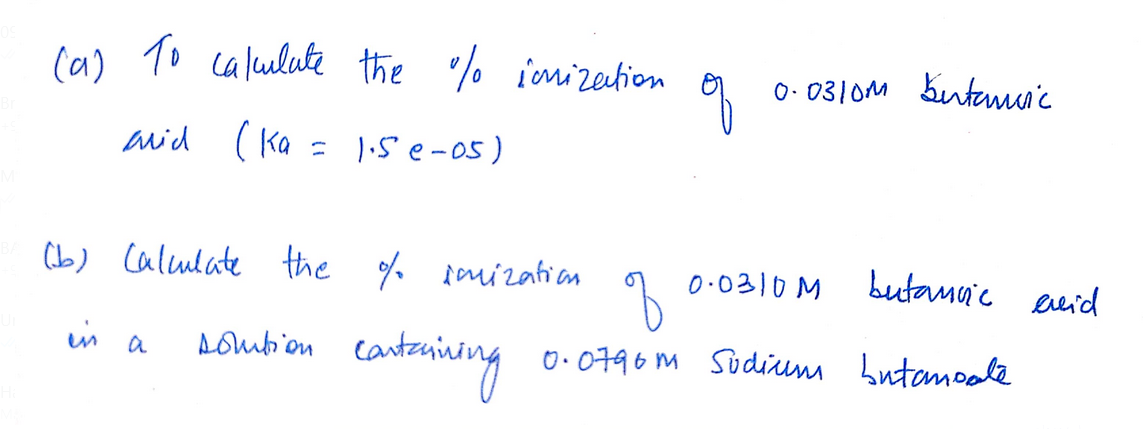 (a) To calculate the % ionization of 0.0310M butanoic
acid (Ka = 1.5 e-05)
(b) Calculate the % ionization of 0.0310 M butanoic acid
in a solution containing 0.0796 M Sodium butanoate